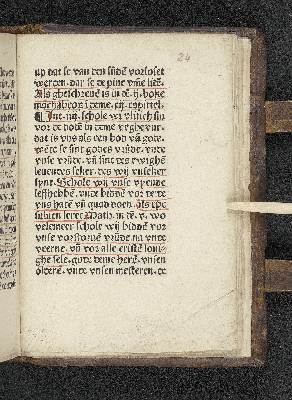 24
up dat se van den sūdē vorloset
werden. dar se de pine vmē lidē.
Als ghescreuē is in dē .ij. boke
machabeor̄ i deme .xij. capittel.
¶ Int .iiij. schole wi vlitich sin
vor de dodē in deme veghevur.
dat is vns als een bod vā gode.
wēte se sint godes vrūde. vnde
vnse vrūde. vn̄ sint des ewighē
leuendes seker. des wy vnseker
synt. Schole wij vnse vyende
leffhebbē. vnde bidden vor de de
vns hatē vn̄ quad doen. als xp̄c
suluen leret Math. in dē .v. wo
velemeer schole wij biddē vor
vnse vorstoruē vrūde na vnde
veerne. vn̄ vor alle cristē loui-
ghe sele. gode deme herē. vnsen
olderē. vnde vnsen mesteren. de